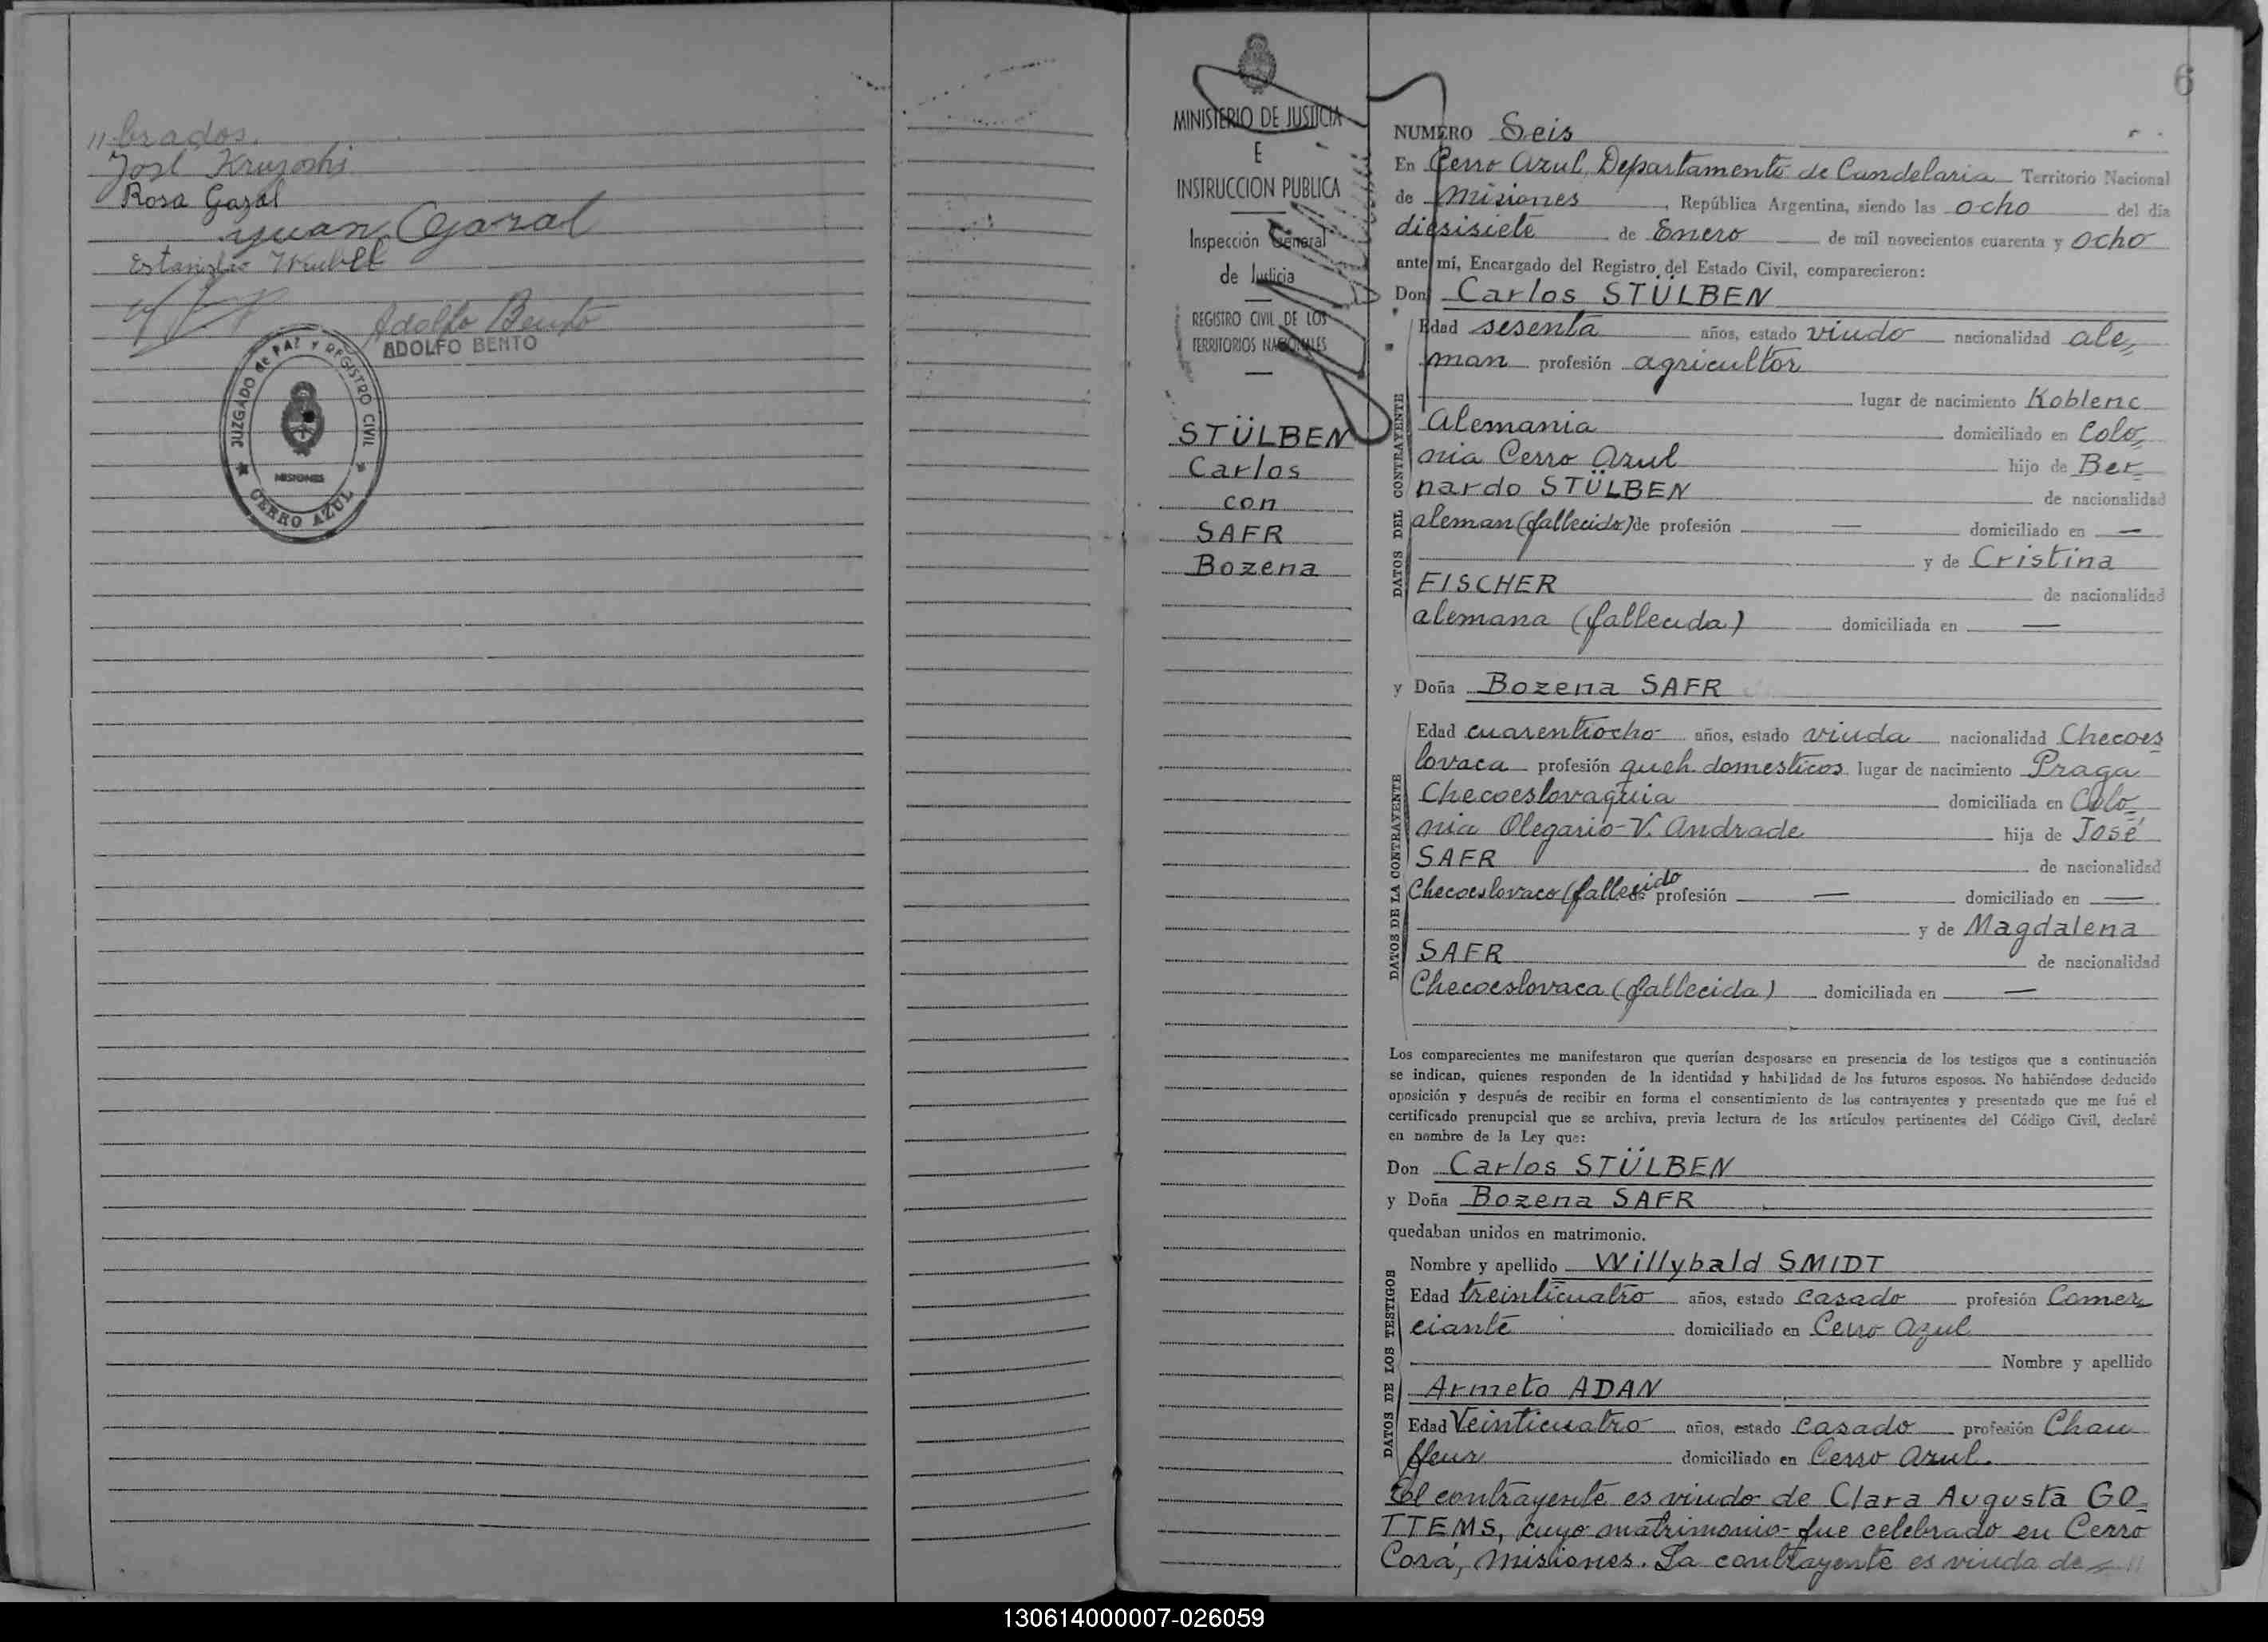 // brados.
José Kruzoshi
Rosa Gazal
Juan Gazal
Estanislao Wrubel
Adolfo Bento
ADOLFO BENTO
JUZGADO de PAZ Y REGISTRO CIVIL
MISIONES
CERRO AZUL
MINISTERIO DE JUSTICIA
E
INSTRUCCION PUBLICA
Inspección General
de Justicia
REGISTRO CIVIL DE LOS
TERRITORIOS NACIONALES
STÜLBEN
Carlos
con
SAFR
Bozena
6
NUMERO Seis
En Cerro Azul, Departamento de Candelaria Territorio Nacional
de Misiones, República Argentina, siendo las ocho del día
diesisiete de Enero de mil novecientos cuarenta y ocho
ante mí, Encargado del Registro del Estado Civil, comparecieron:
Don Carlos STÜLBEN
DATOS DEL CONTRAYENTE
Edad sesenta años, estado viudo nacionalidad ale=
man profesión agricultor
lugar de nacimiento Koblenc
Alemania domiciliado en Colo=
nia Cerro Azul hijo de Ber=
nardo STÜLBEN de nacionalidad
aleman (fallecido) de profesión — domiciliado en —
y de Cristina
FISCHER de nacionalidad
alemana (fallecida) domiciliada en —
y Doña Bozena SAFR
DATOS DE LA CONTRAYENTE
Edad cuarentiocho años, estado viuda nacionalidad Checoes
lovaca profesión queh. domesticos lugar de nacimiento Praga
Checoeslovaquia domiciliada en Colo=
nia Olegario V. Andrade hija de José
SAFR de nacionalidad
Checoeslovaco (fallecido profesión — domiciliado en —
y de Magdalena
SAFR de nacionalidad
Checoeslovaca (fallecida) domiciliada en —
Los comparecientes me manifestaron que querían desposarse en presencia de los testigos que a continuación
se indican, quienes responden de la identidad y habilidad de los futuros esposos. No habiéndose deducido
oposición y después de recibir en forma el consentimiento de los contrayentes y presentado que me fué el
certificado prenupcial que se archiva, previa lectura de los artículos pertinentes del Código Civil, declaré
en nombre de la Ley que:
Don Carlos STÜLBEN
y Doña Bozena SAFR
quedaban unidos en matrimonio.
DATOS DE LOS TESTIGOS
Nombre y apellido Willybald SMIDT
Edad treinticuatro años, estado casado profesión Comer=
ciante domiciliado en Cerro Azul
Nombre y apellido
Armeto ADAN
Edad Veinticuatro años, estado casado profesión Chau
ffeur domiciliado en Cerro Azul.
El contrayente es viudo de Clara Augusta GO=
TTEMS, cuyo matrimonio fue celebrado en Cerro
Corá, Misiones. La contrayente es viuda de //
130614000007-026059